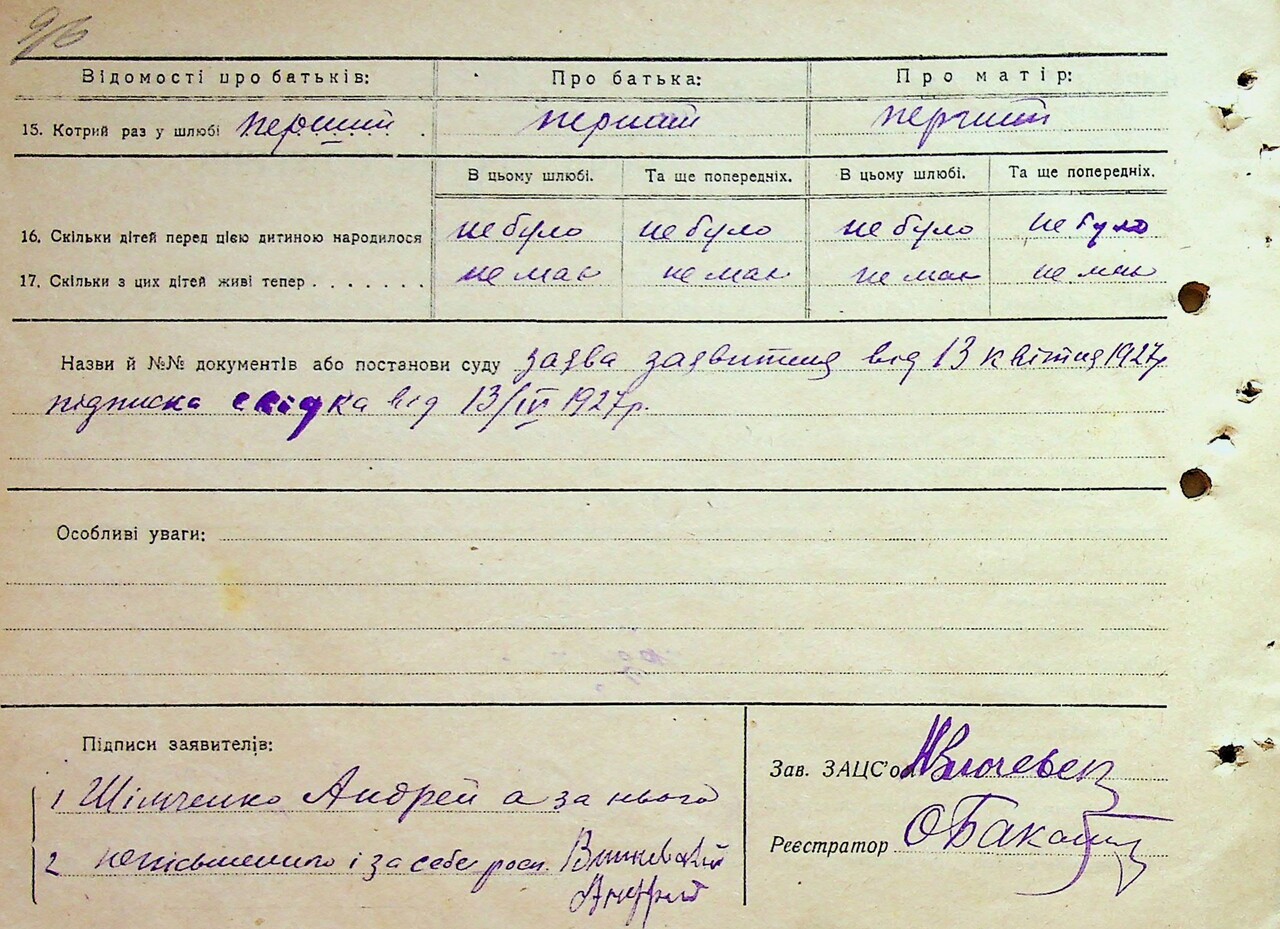 96
Відомості про батьків: Про батька: Про матір:
15. Котрий раз у шлюбі перший . перший перший
В цьому шлюбі. Та ще попередніх. В цьому шлюбі. Та ще попередніх.
16. Скільки дітей перед цією дитиною народилося не було не було не було не було
17. Скільки з цих дітей живі тепер . . . . . . . не має не має не має не має
Назви й №№ документів або постанови суду заява заявитиля від 13 квітня 1927р
підписка свідка від 13/IV 1927р.
Особливі уваги:
Підписи заявителів:
1 Шімченко Андрей а за нього
2 неписьменного і за себе росп.
Андрей
Зав. ЗАЦС'ом
Реєстратор